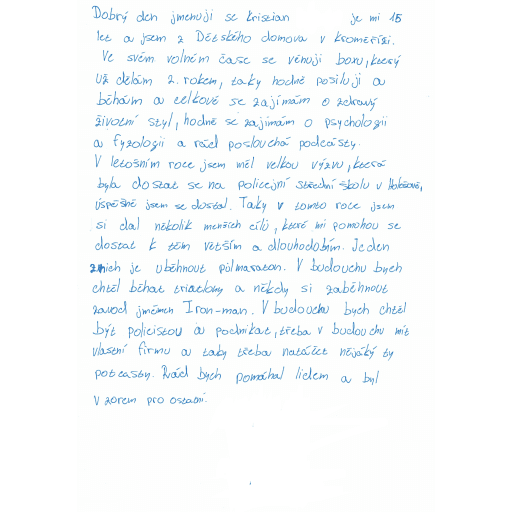 Dobrý den jmenuji se Kristian je mi 15
let a jsem z Dětského domova v Kroměříži.
Ve svém volném čase se věnuji boxu, který
už dělám 2. rokem, taky hodně posiluji a
běhám a celkově se zajímám o zdravý
životní styl, hodně se zajímám o psychologii
a fyzologii a rád poslouchá podcásty.
V letošním roce jsem měl velkou výzvu, která
byla dostat se na policejní střední školu v Holešově,
úspěšně jsem se dostal. Taky v tomto roce jsem
si dal několik menších cílů, které mi pomohou se
dostat k těm větším a dlouhodobím. Jeden
z nich je uběhnout půlmaraton. V budoucnu bych
chtěl běhat triatlony a někdy si zaběhnout
zavod jménem Iron-man. V budoucnu bych chtěl
být policistou a podnikat, třeba v budoucnu mít
vlastní firmu a taky třeba natáčet nějáký ty
potcasty. Rád bych pomáhal lidem a byl
vzorem pro ostatní.